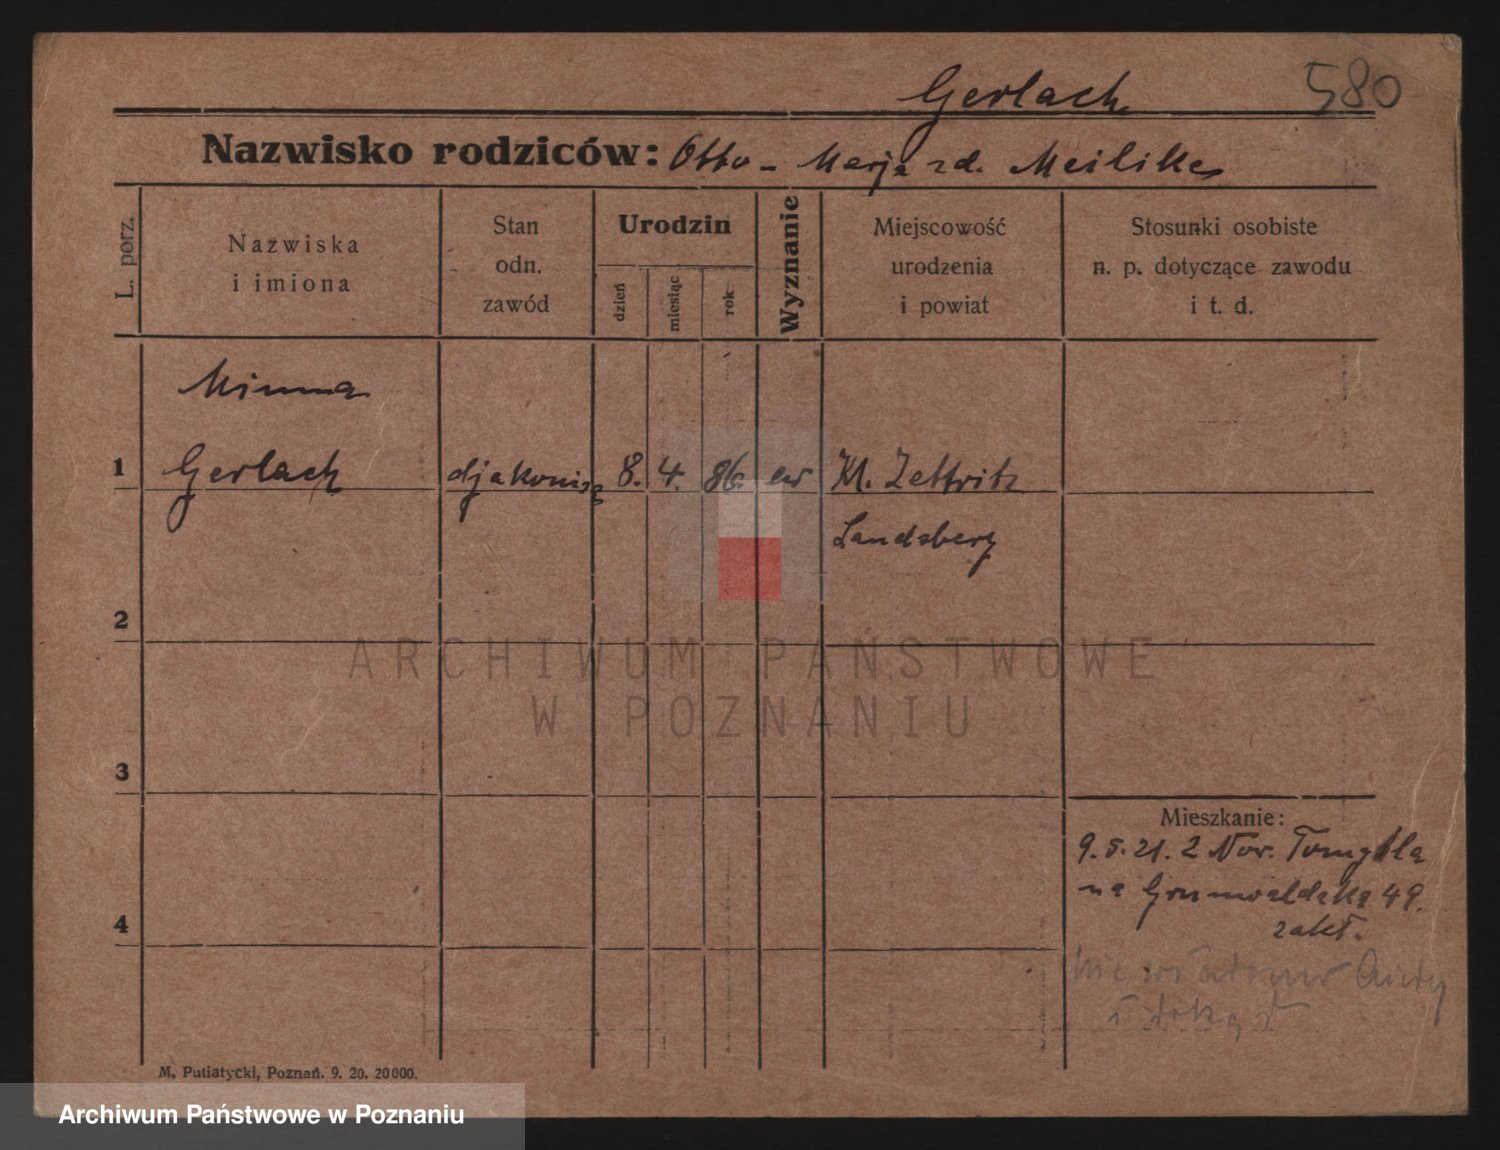 580
Gerlach
Nazwisko rodziców: Otto - Marja zd. Meilike
L. porz.
Nazwiska i imiona
Stan odn. zawód
Urodzin
dzień
miesiąc
rok
Wyznanie
Miejscowość urodzenia i powiat
Stosunki osobiste n. p. dotyczące zawodu i t. d.
Minna
1 Gerlach djakonisą 8. 4. 86. ew Kl. Zettritz
Landsberg
2
ARCHIWUM PAŃSTWOWE
W POZNANIU
3
Mieszkanie:
9.5.21. z Nov. Tomyśla
na Grunwaldską 49.
4
zakł.
nie wiadomo
i dokąd
M. Putiatycki, Poznań. 9. 20. 20000.
Archiwum Państwowe w Poznaniu